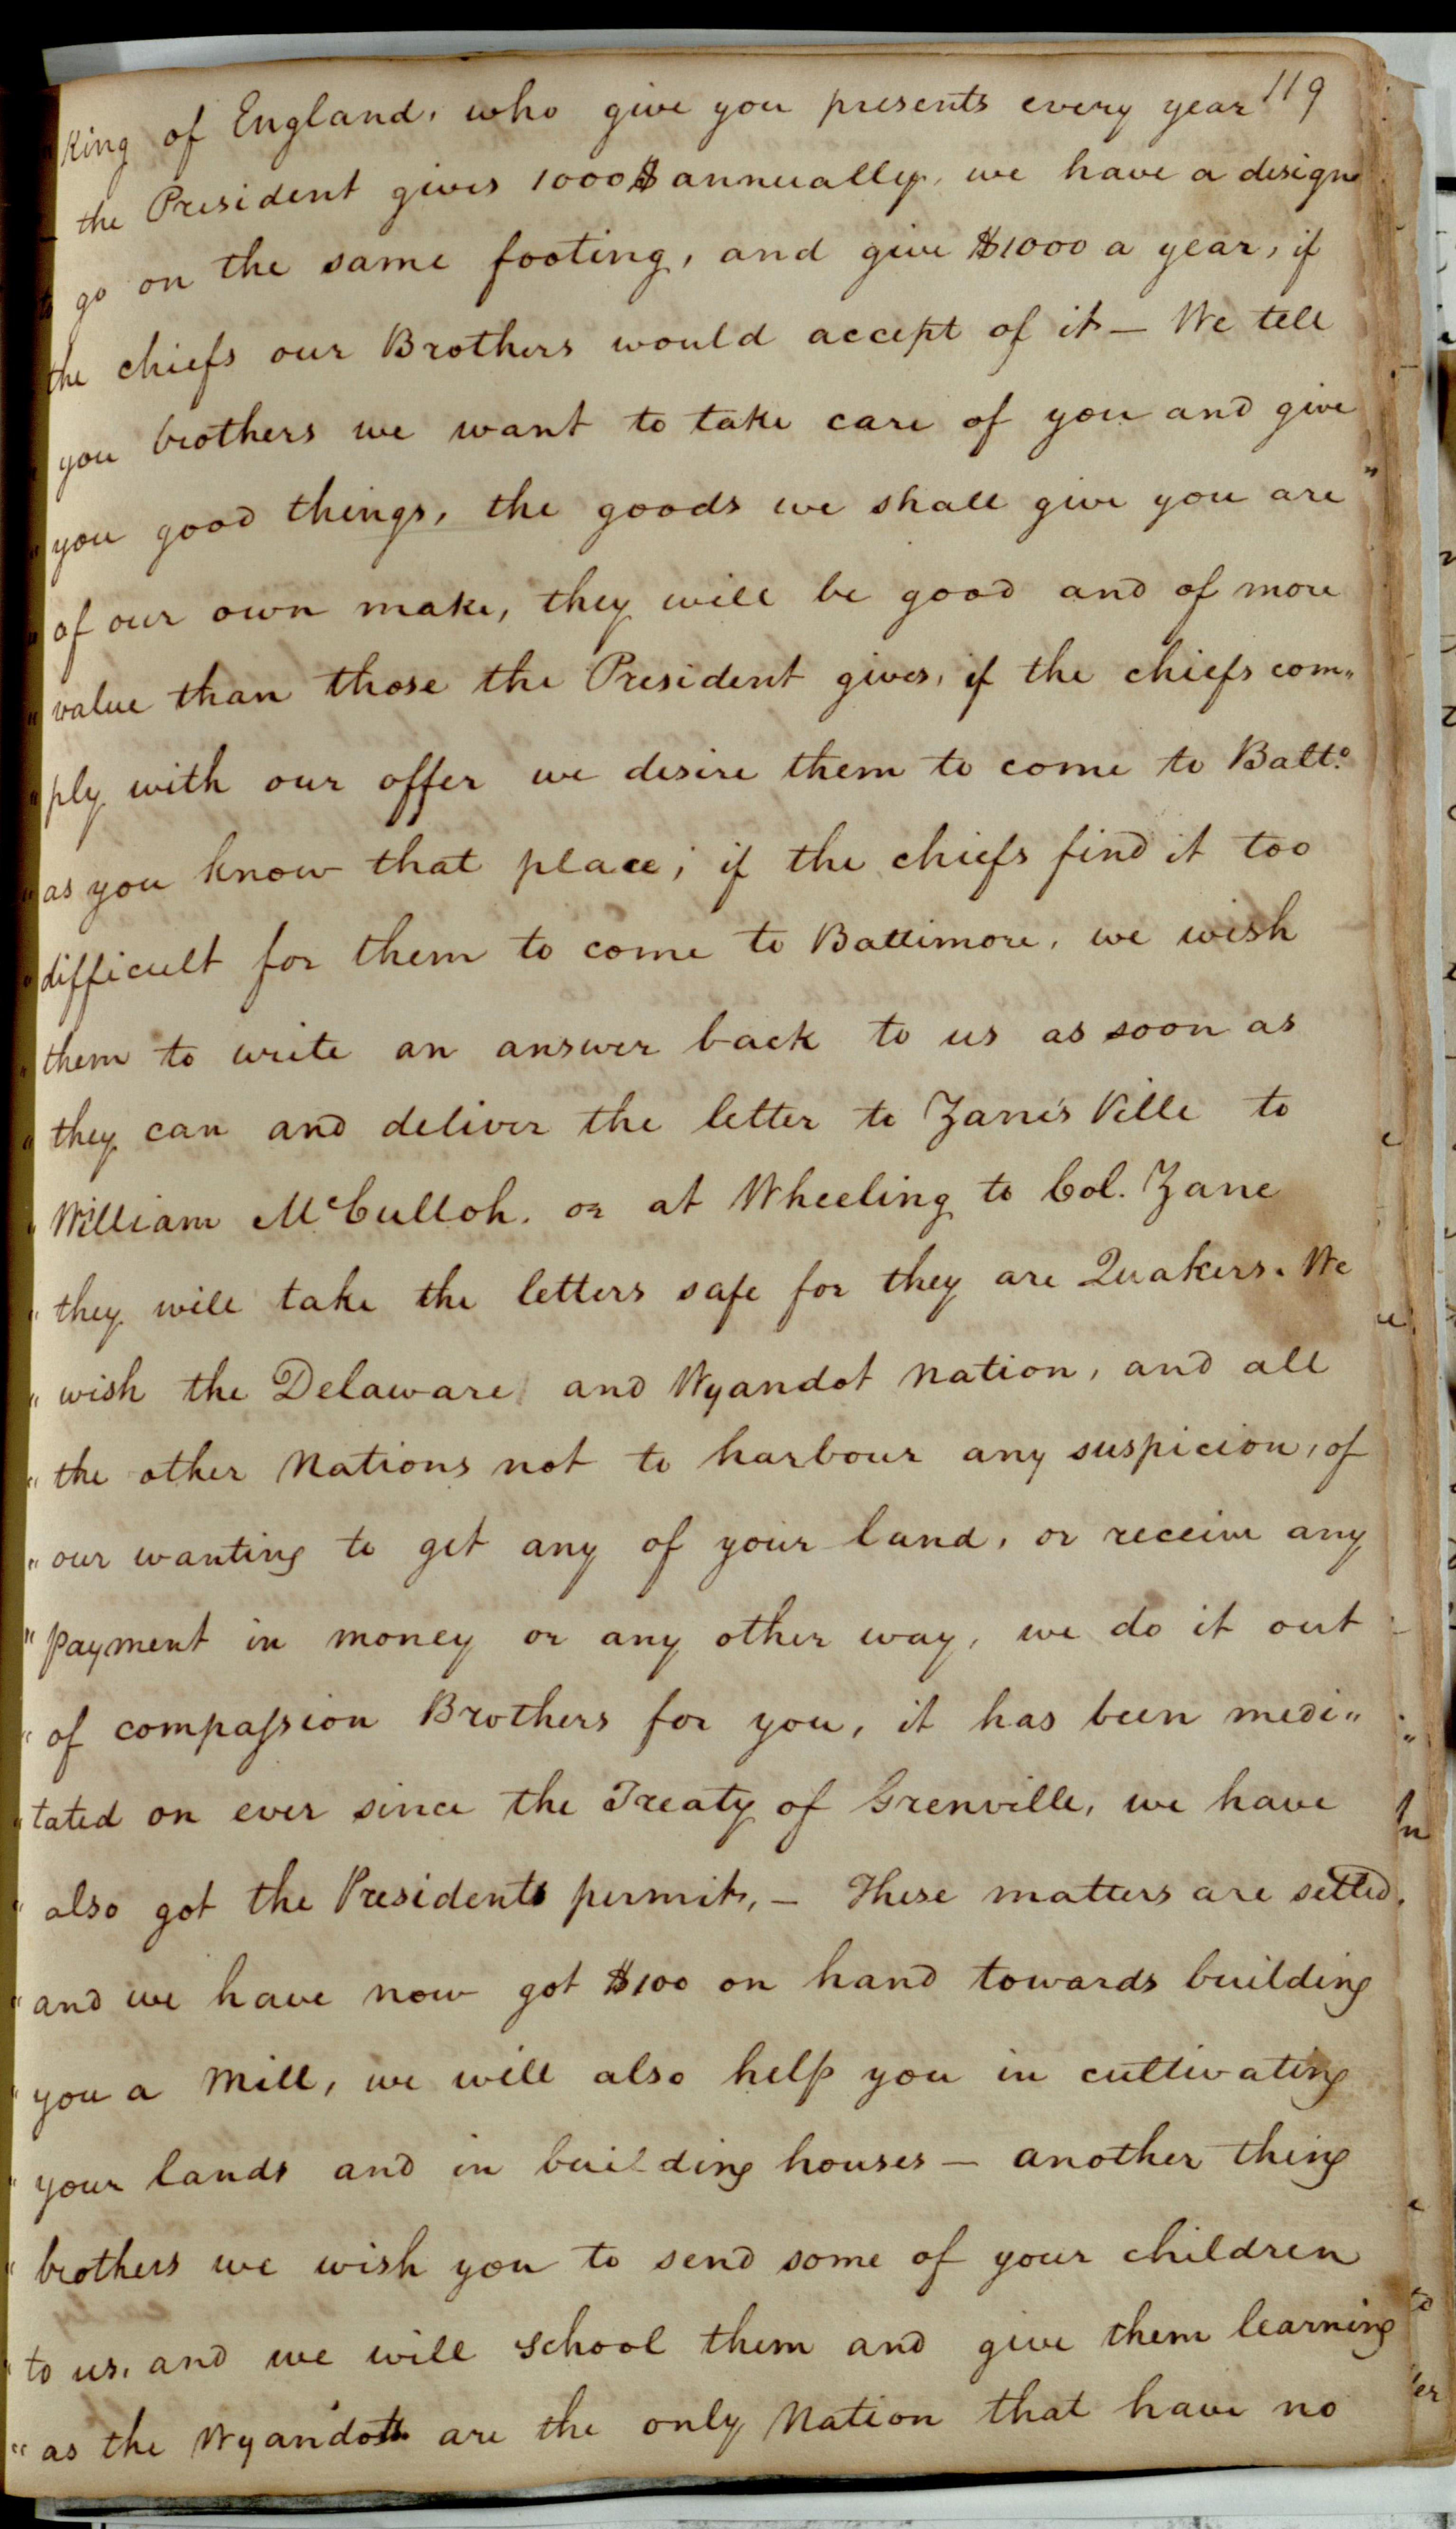 119
King of England, who give you presents every year
the President gives 1000$ annually, we have a design
to go on the same footing, and give $1000 a year, if
the chiefs our Brothers would accept of it — We tell
you brothers we want to take care of you and give
" you good things, the goods we shall give you are
" of our own make, they will be good and of more
" value than those the President gives, if the chiefs com„
" ply with our offer we desire them to come to Balto.
" as you know that place; if the chiefs find it too
" difficult for them to come to Baltimore, we wish
" them to write an answer back to us as soon as
" they can and deliver the letter to Zane's Ville to
" William McCulloh. or at Wheeling to Col. Zane
" they will take the letters safe for they are Quakers. We
" wish the Delaware and Wyandot nation, and all
" the other Nations not to harbour any suspicion, of
" our wanting to get any of your land, or receive any
" payment in money or any other way, we do it out
" of compassion Brothers for you, it has been medi„
" tated on ever since the Treaty of Grenville, we have
" also got the Presidents permit, — These matters are settled,
" and we have now got $100 on hand towards building
" you a mill, we will also help you in cultivating
" your lands and in building houses — another thing
" brothers we wish you to send some of your children
" to us, and we will school them and give them learning
" as the Wyandots are the only Nation that have no